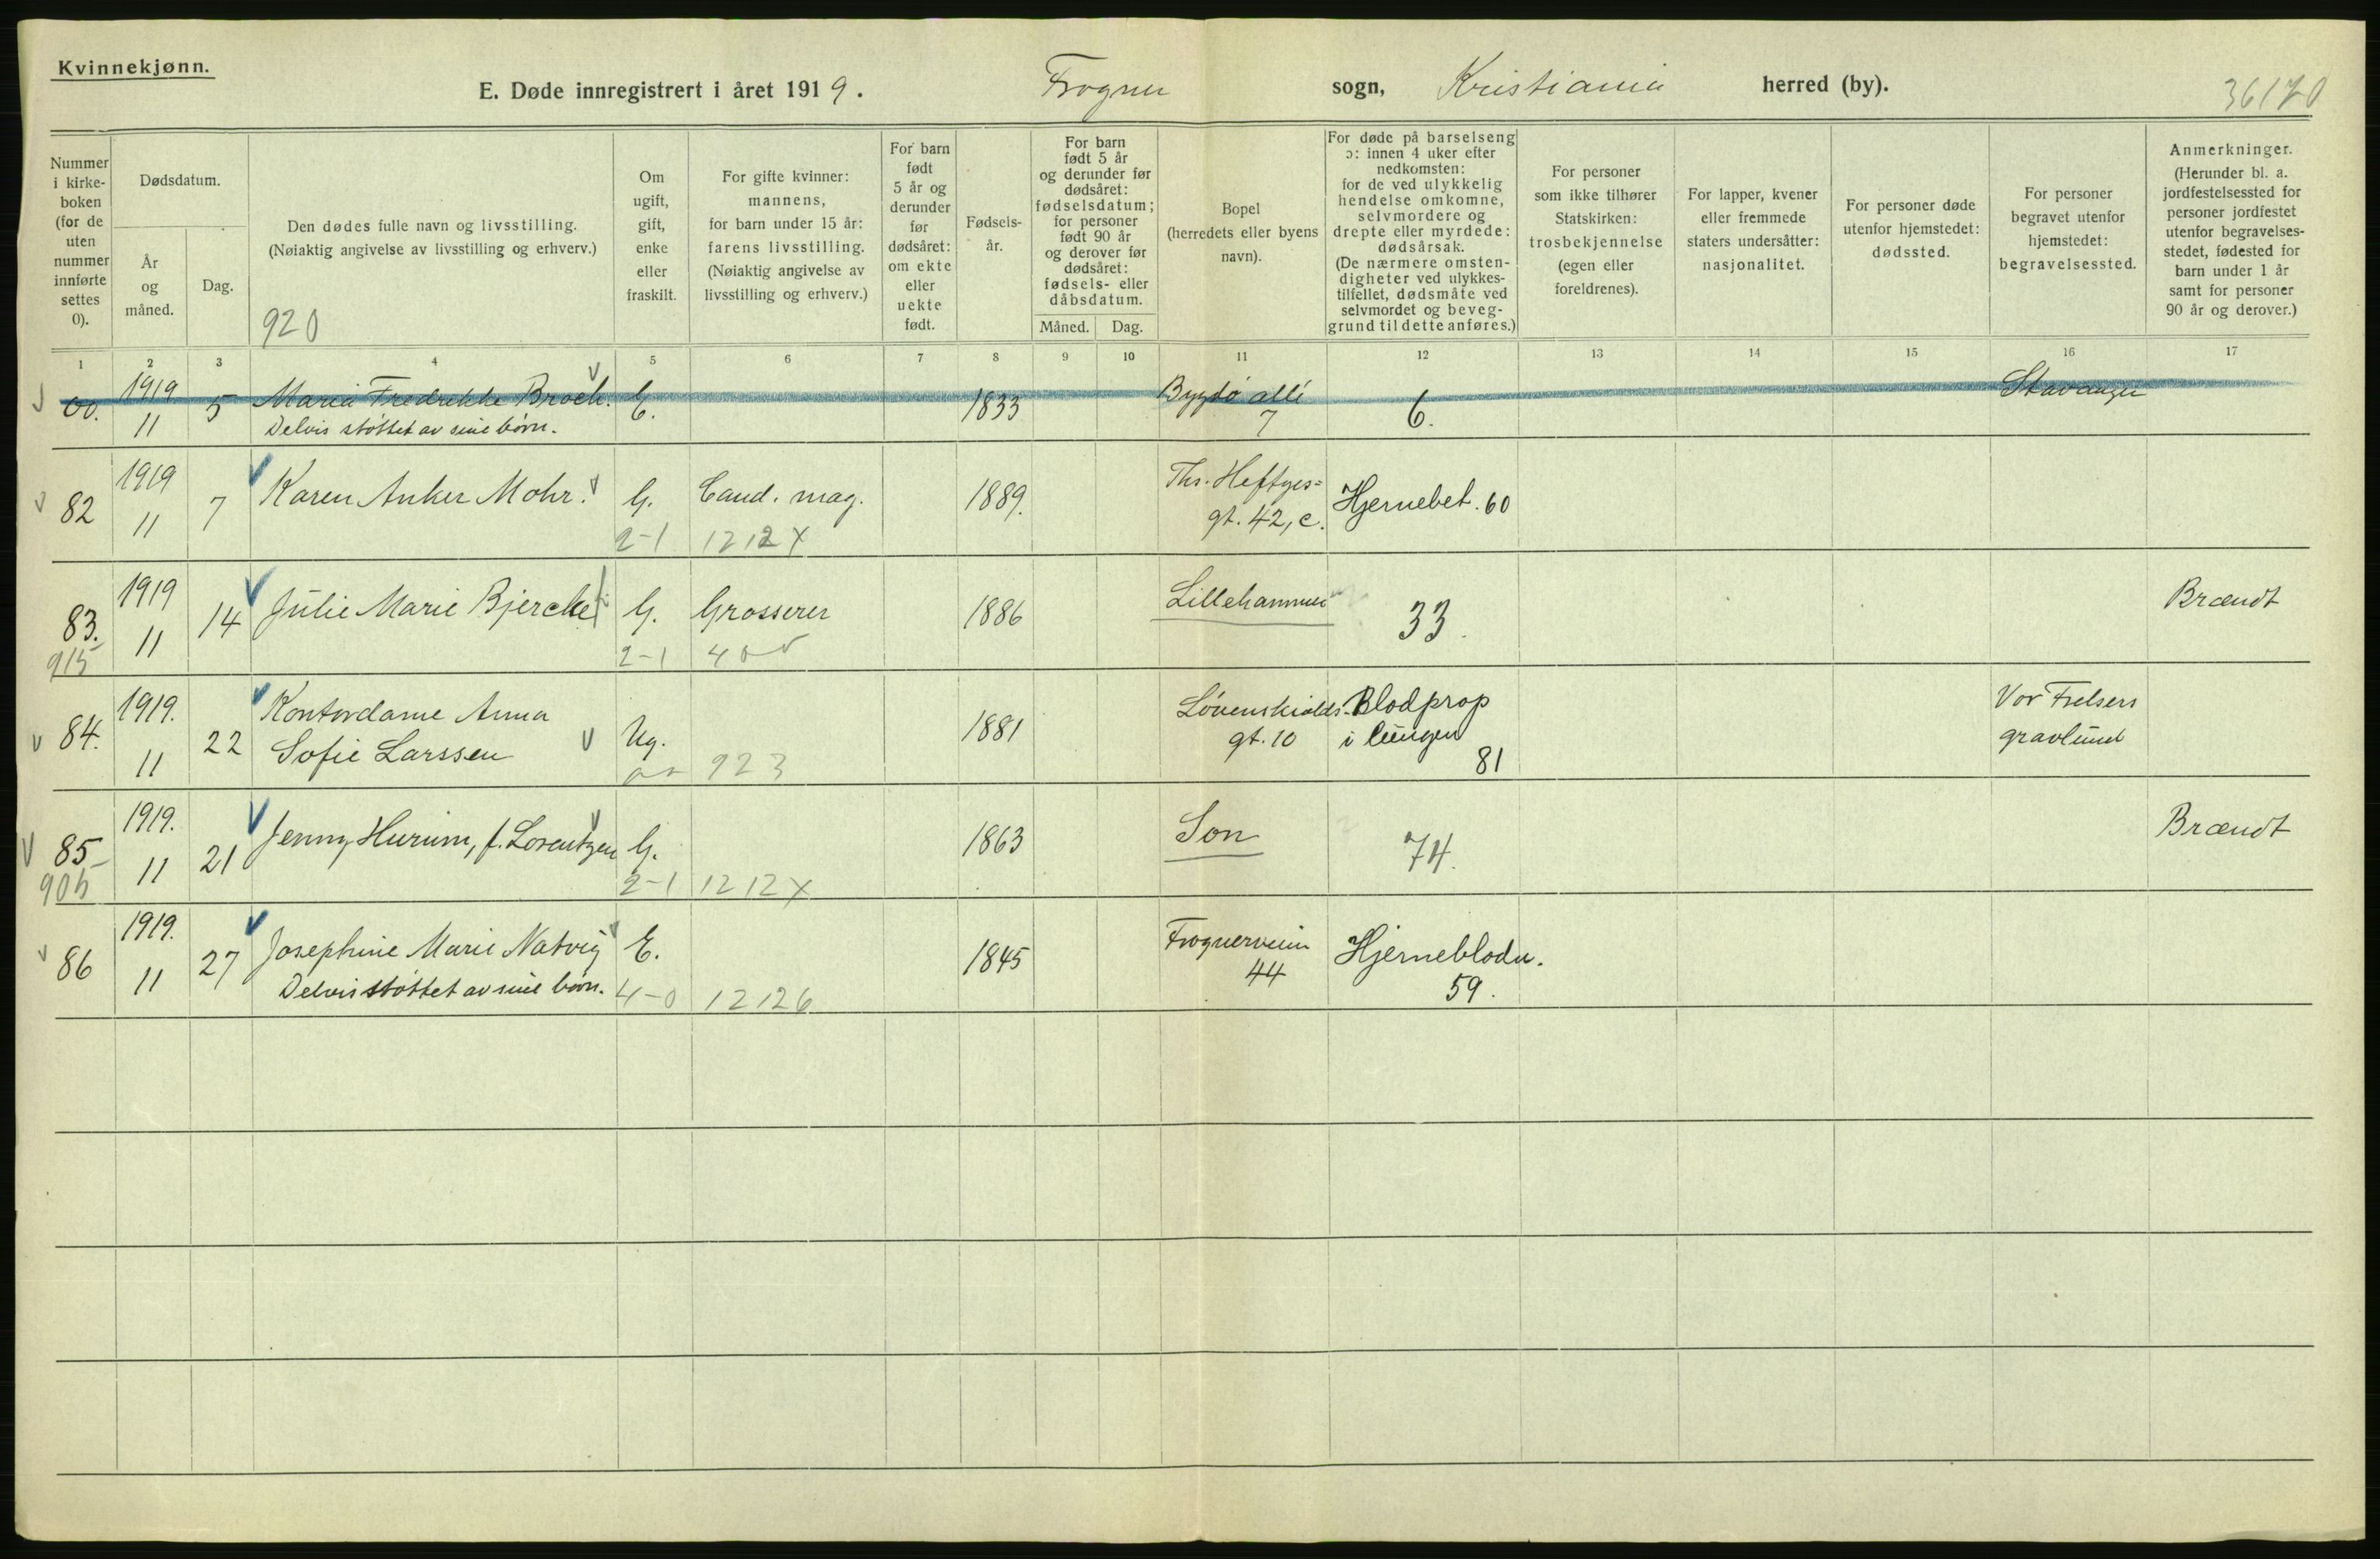 Kvinnekjønn.
E. Døde innregistrert i året 1919. Frogner sogn, Kristiania herred (by). 36170
Nummer i kirke- boken (for de uten nummer innførte settes 0).
Dødsdatum.
År og måned.
Dag.
Den dødes fulle navn og livsstilling.
(Nøiaktig angivelse av livsstilling og erhverv.)
920
Om ugift, gift, enke eller fraskilt.
For gifte kvinner: mannens, for barn under 15 år: farens livsstilling. (Nøiaktig angivelse av livsstilling og erhverv.)
For barn født 5 år og derunder før dødsåret: om ekte eller uekte født.
Fødsels- år.
For barn født 5 år og derunder før dødsåret: fødselsdatum; for personer født 90 år og derover før dødsåret: fødsels- eller dåbsdatum.
Måned. Dag.
Bopel (herredets eller byens navn).
For døde på barselseng ɔ: innen 4 uker efter nedkomsten: for de ved ulykkelig hendelse omkomne, selvmordere og drepte eller myrdede: dødsårsak. (De nærmere omsten- digheter ved ulykkes- tilfellet, dødsmåte ved selvmordet og beveg- grund til dette anføres.)
For personer som ikke tilhører Statskirken: trosbekjennelse (egen eller foreldrenes).
For lapper, kvener eller fremmede staters undersåtter: nasjonalitet.
For personer døde utenfor hjemstedet: dødssted.
For personer begravet utenfor hjemstedet: begravelsessted.
Anmerkninger. (Herunder bl. a. jordfestelsessted for personer jordfestet utenfor begravelses- stedet, fødested for barn under 1 år samt for personer 90 år og derover.)
1 2 3 4 5 6 7 8 9 10 11 12 13 14 15 16 17
00. 1919 11 5 Maria Fredrikke Broch. E. 1833 Bygdø allé 7 6. Stavanger
Delvis støttet av sine børn.
82 1919 11 7 Karen Anker Mohr. G. Cand. mag. 1889. Ths. Heftyes= gt. 42, c. Hjernebet. 60
2-1 1212 X
83. 1919 11 14 Julie Marie Bjercke G. Grosserer 1886 Lillehammer 33. Brændt
915 2-1 400
84. 1919. 11 22 Kontordame Anna Ug. 1881 Løvenskiolds- gt. 10 Blodprop i lungen 81 Vor Frelsers gravlund
Sofie Larssen 923
85 1919. 11 21 Jenny Hurum, f. Lorentzen G. 1863 Son 74. Brændt
905 2-1 1212 X
86 1919. 11 27 Josephine Marie Natvig E. 1845 Frognerveien 44 Hjerneblødn. 59.
Delvis støttet av sine børn. 4-0 12126